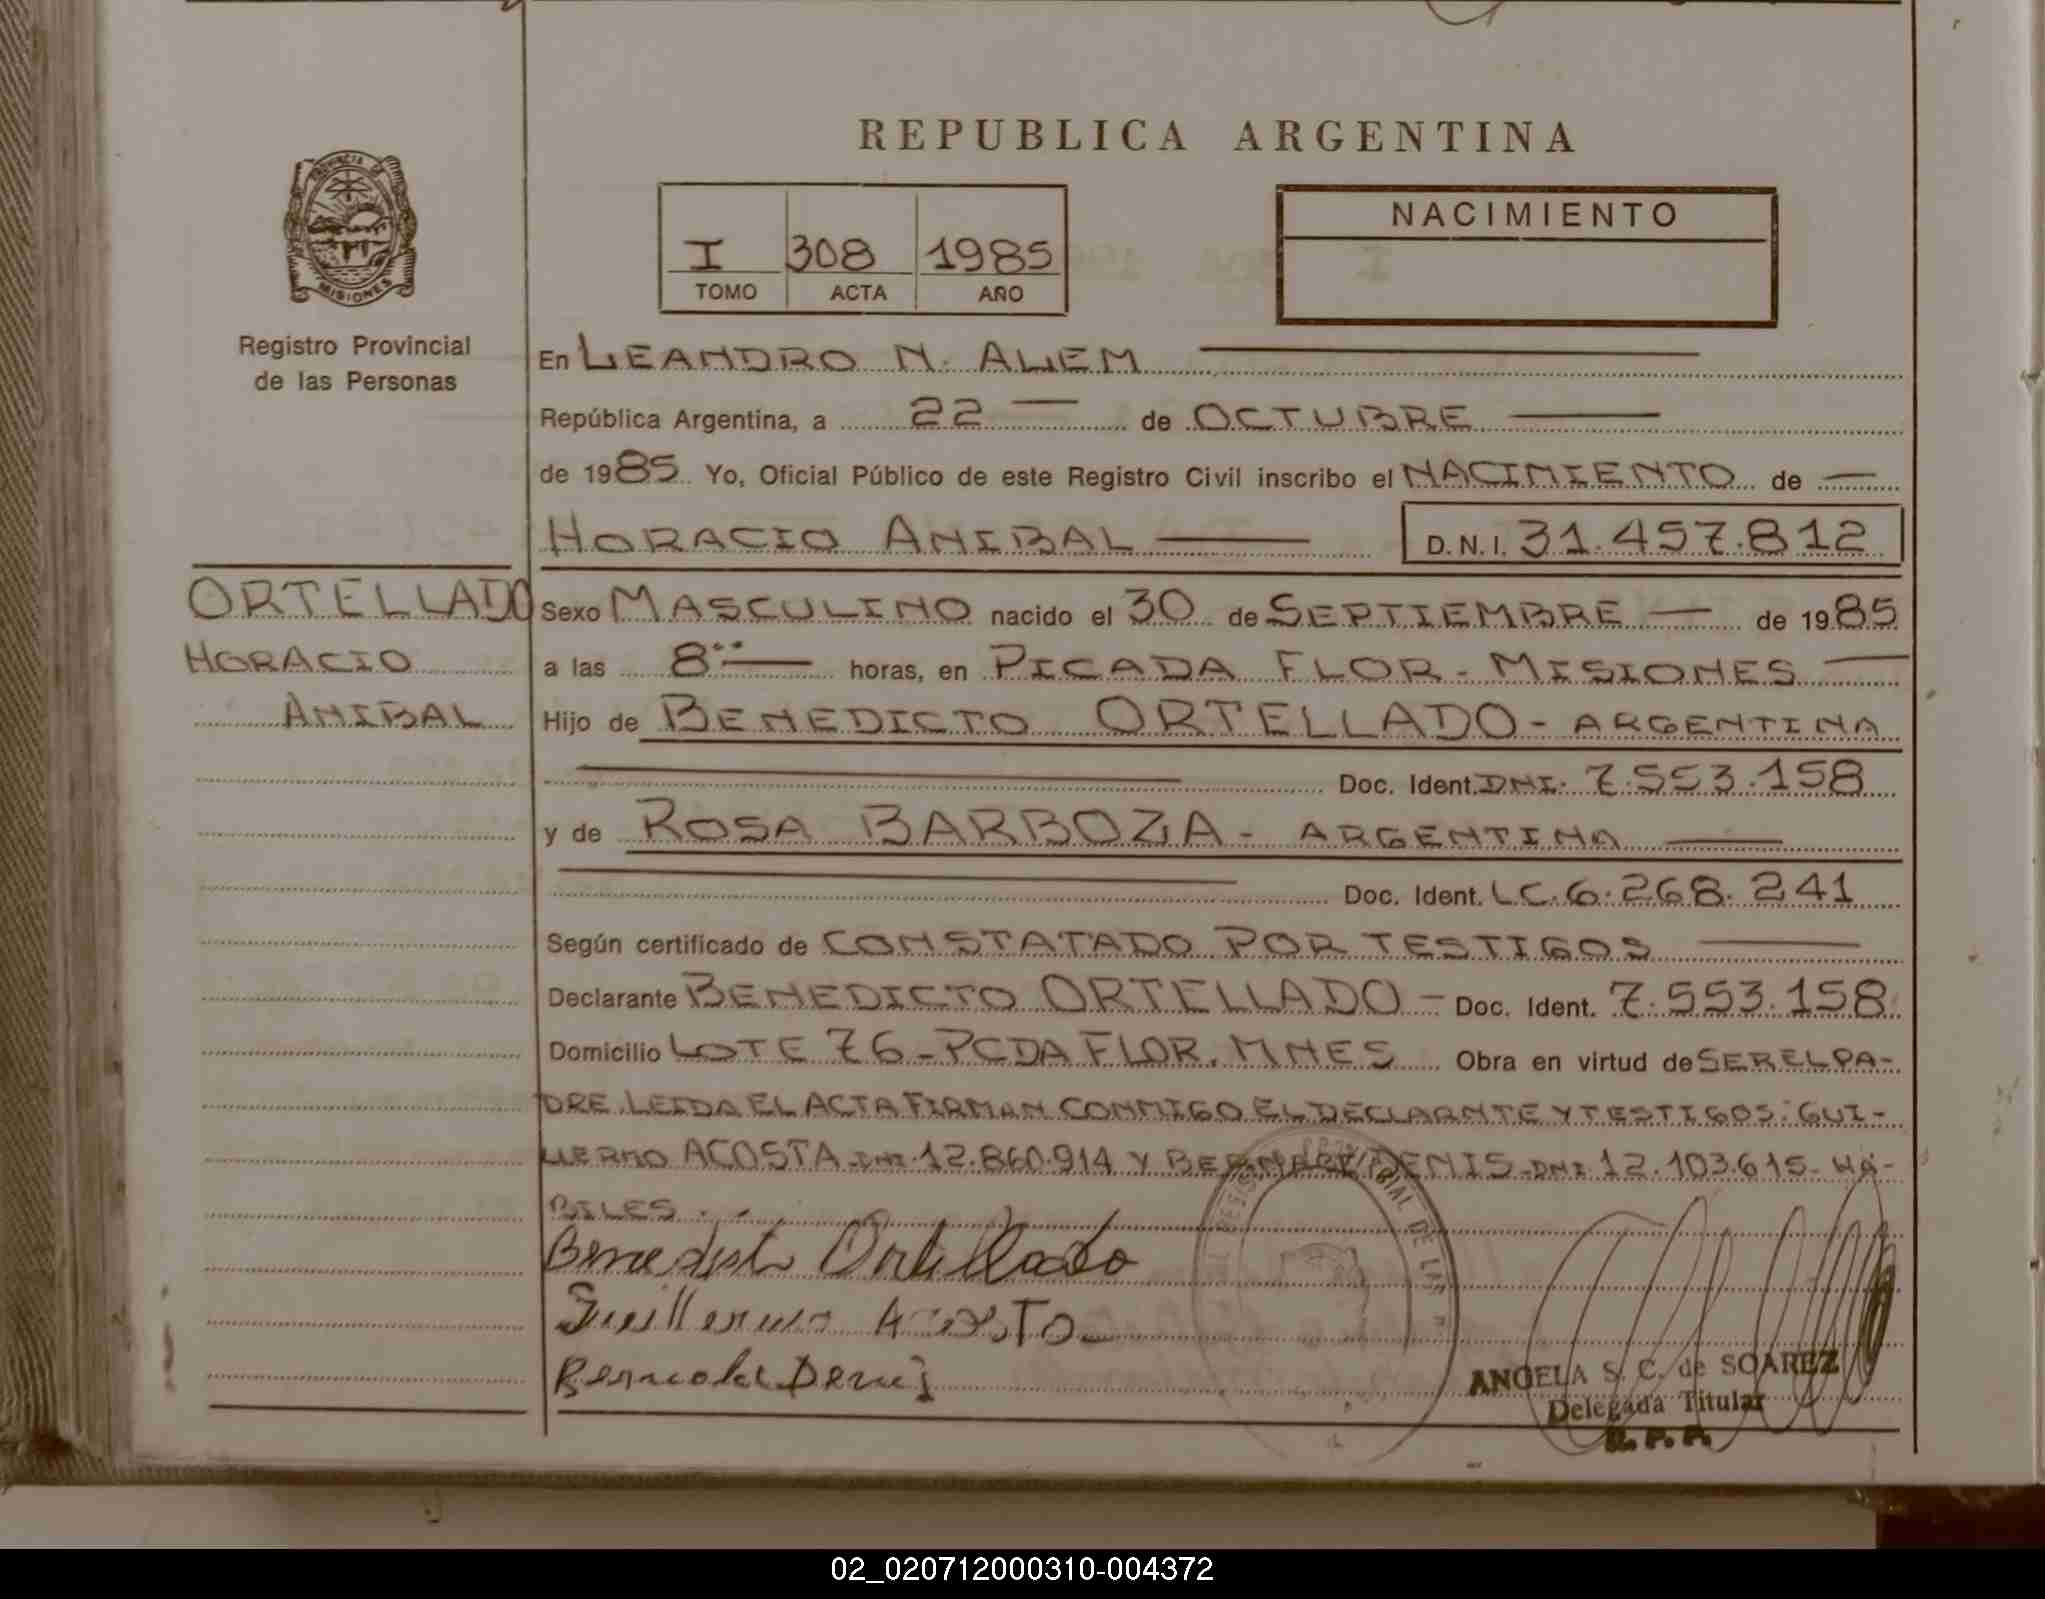 REPUBLICA ARGENTINA
PROVINCIA DE
MISIONES
Registro Provincial
de las Personas
I 308 1985
TOMO ACTA AÑO
NACIMIENTO
En LEANDRO N. ALEM
República Argentina, a 22 de OCTUBRE
de 1985. Yo, Oficial Público de este Registro Civil inscribo el NACIMIENTO de
HORACIO ANIBAL D.N.I. 31.457.812
ORTELLADO
HORACIO
ANIBAL
Sexo MASCULINO nacido el 30 de SEPTIEMBRE de 1985
a las 8 horas, en PICADA FLOR - MISIONES
Hijo de BENEDICTO ORTELLADO - ARGENTINA
Doc. Ident. DNI. 7.553.158
y de ROSA BARBOZA - ARGENTINA
Doc. Ident. LC. 6.268.241
Según certificado de CONSTATADO POR TESTIGOS
Declarante BENEDICTO ORTELLADO - Doc. Ident. 7.553.158
Domicilio LOTE 76 - PCDA FLOR. MNES Obra en virtud de SER EL PA-
DRE. LEIDA EL ACTA FIRMAN CONMIGO EL DECLARNTE Y TESTIGOS: GUI-
LLERMO ACOSTA DNI. 12.860.914 Y DENIS - DNI. 12.103.615 - HA-
BILES.
Benedicto Ortellado
Guillermo Acosta
Denis
ANGELA S. C. de SOAREZ
Delegada Titular
R. P. P.
02_020712000310-004372